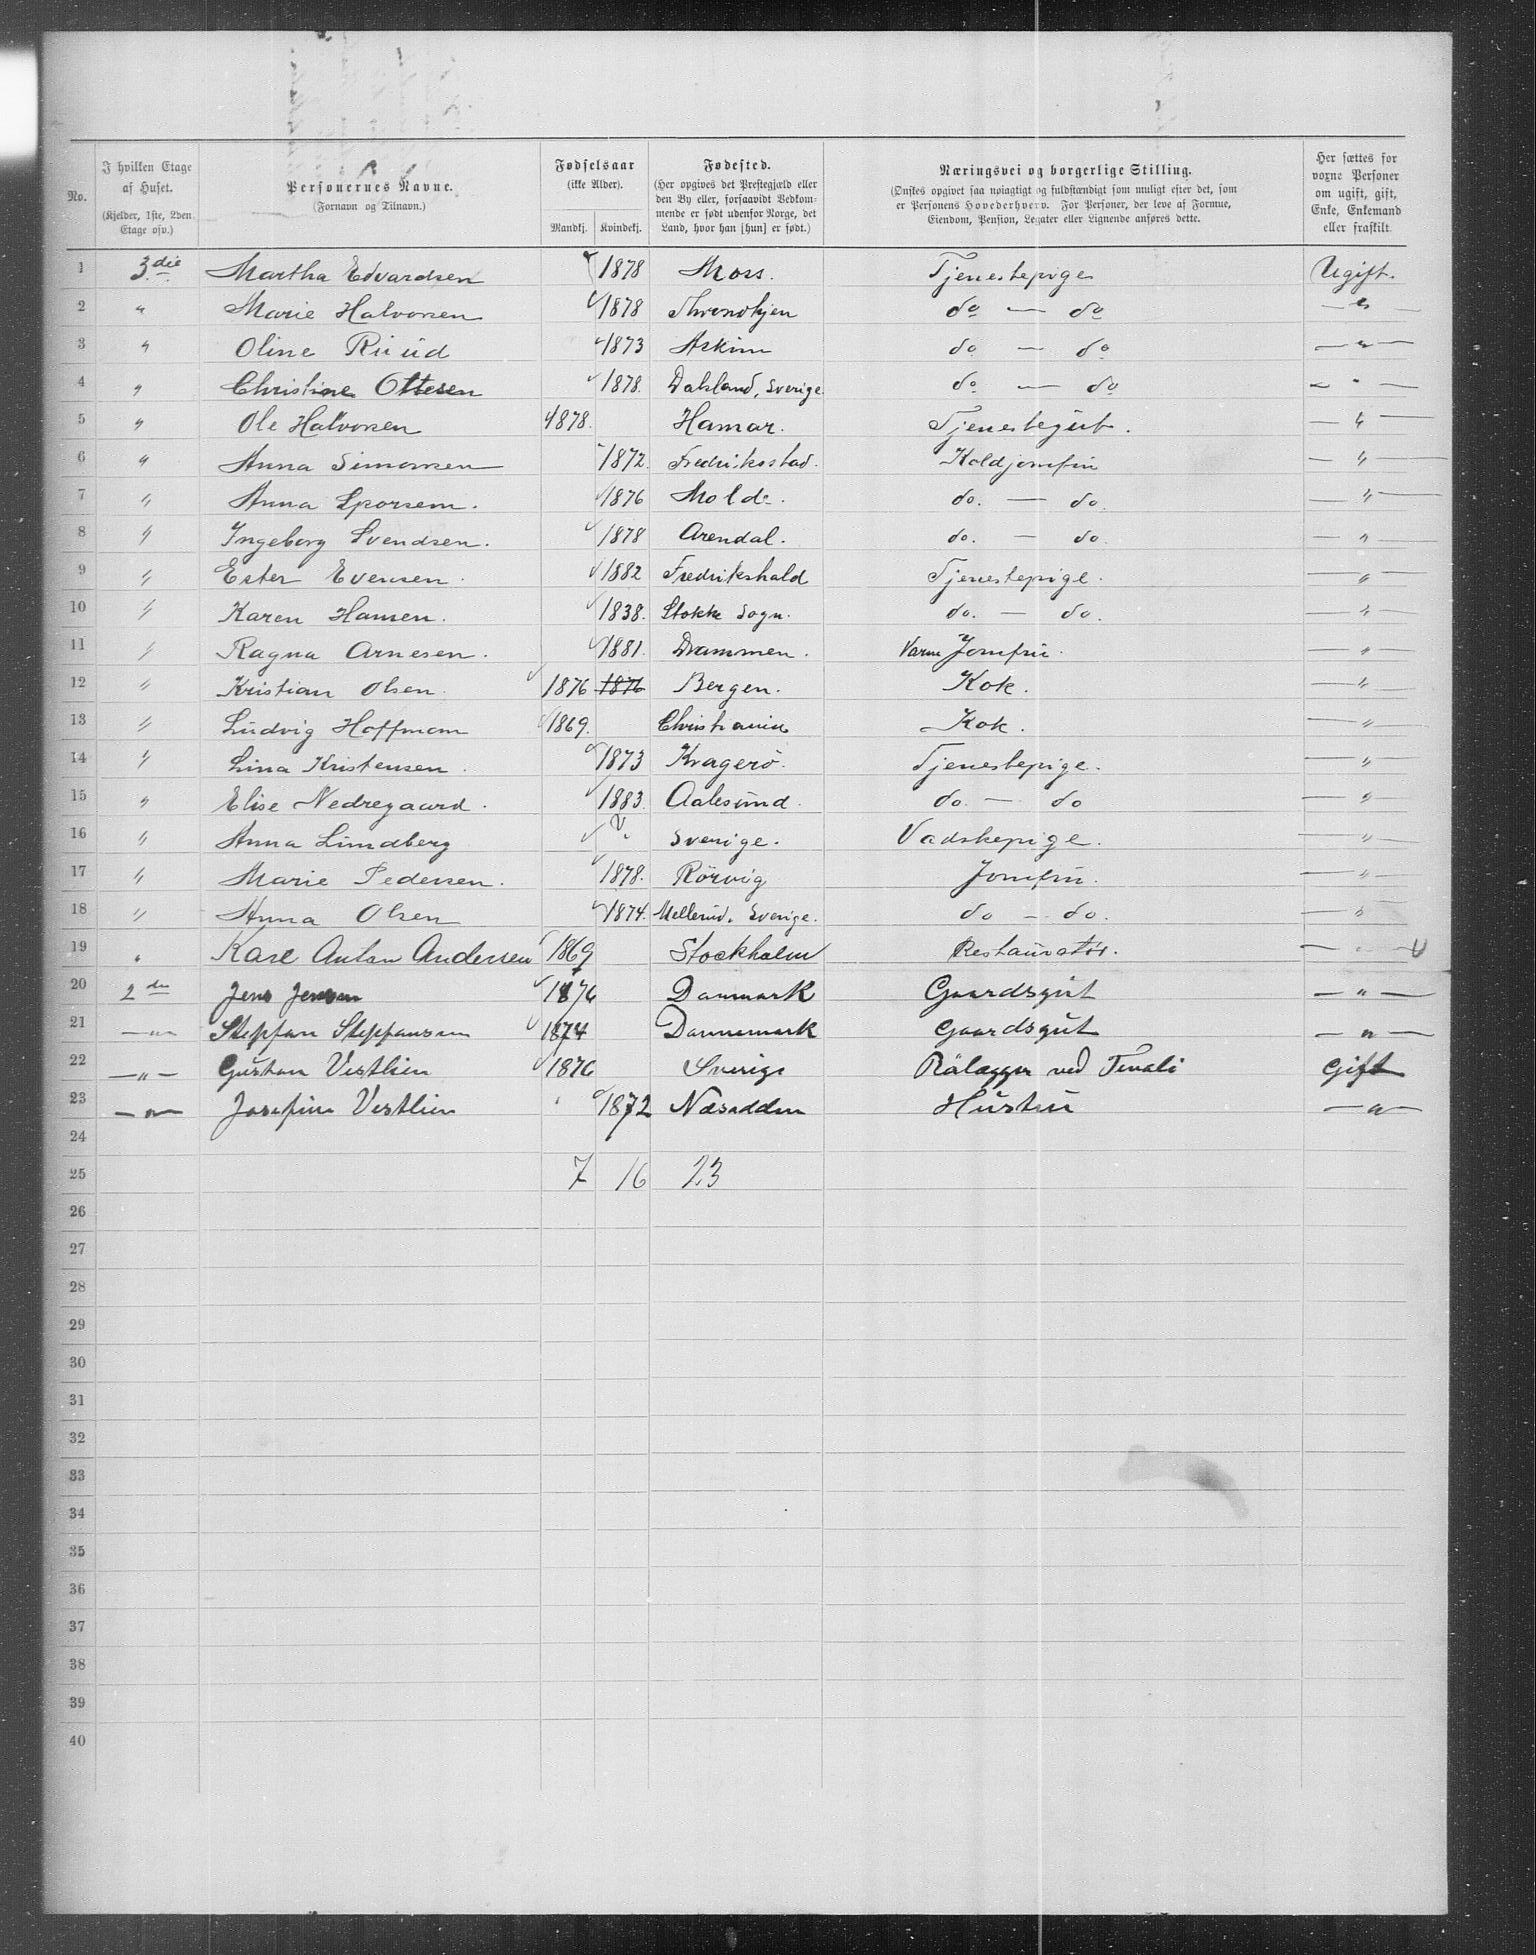 No. I hvilken Etage af Huset. (Kjelder, 1ste, 2den Etage osv.) Personernes Navne. (Fornavn og Tilnavn.) Fødselsaar (ikke Alder). Mandkj. Kvindekj. Fødested. (Her opgives det Prestegjæld eller den By eller, forsaavidt Vedkommende er født udenfor Norge, det Land, hvor han [hun] er født.) Næringsvei og borgerlige Stilling. (Ønskes opgivet saa nøiagtigt og fuldstændigt som muligt efter det, som er Personens Hovederhverv. For Personer, der leve af Formue, Eiendom, Pension, Legater eller Lignende anføres dette. Her sættes for voxne Personer om ugift, gift, Enke, Enkemand eller fraskilt.
1 3die Martha Edvardsen 1878 Moss. Tjenestepige Ugift.
2 " Marie Halvorsen 1878 Throndhjen do — do — " —
3 " Oline Ruud 1873 Askim do — do — " —
4 " Christine Ottesen 1878. Dalsland, Sverige. do — do — " —
5 " Ole Halvorsen 1878. Hamar. Tjenestegut. — " —
6 " Anna Simonsen 1872. Fredriksstad. Koldjomfru — " —
7 " Anna Sporsem. 1876 Molde. do. — do. — " —
8 " Ingeborg Svendsen. 1878 Arendal. do. — do. — " —
9 " Ester Evensen. 1882 Fredrikshald Tjenestepige. — " —
10 " Karen Hansen. 1838. Stokke Sogn. do. — do. — " —
11 " Ragna Arnesen. 1881. Drammen. Varm Jomfru. — " —
12 " Kristian Olsen. 1876 1876 Bergen. Kok. — " —
13 " Ludvig Hoffmam 1869. Christiania Kok. — " —
14 " Lina Kristensen. 1873 Kragerö. Tjenestepige. — " —
15 " Elise Nedregaard. 1883. Aalesund. do. — do — " —
16 " Anna Lundberg ? Sverige. Vadskepige. — " —
17 " Marie Pedersen. 1878. Rörvig Jomfru. — " —
18 " Anna Olsen 1874. Mellerud. Sverige. do — do. — " —
19 " Karl Anton Andersen 1869 Stockholm Restauratör. — " — U
20 2den Jens Jensen 1876 Danmark Gaardsgut — " —
21 — " — Steffan Steffansen 1874 Dannemark Gaardsgut — " —
22 — " — Gustav Vestlien 1876 Sverige Rälægger ved Gift
23 — " — Josefine Vestlien 1872 Næsodden Hustru — " —
24
25 7 16 23
26
27
28
29
30
31
32
33
34
35
36
37
38
39
40